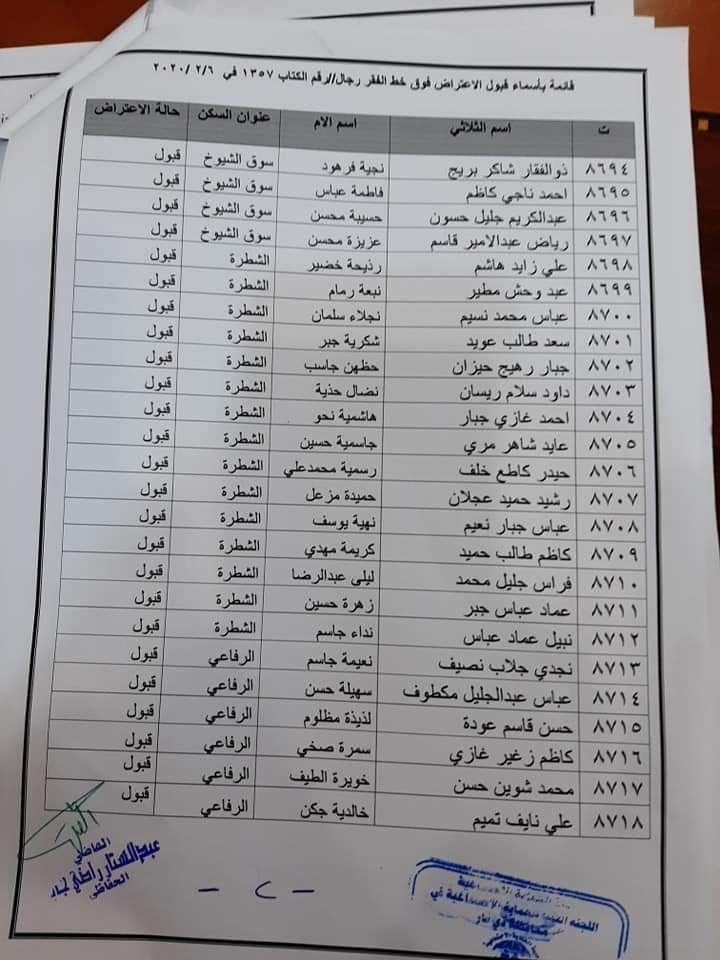 قائمة بأسماء قبول الاعتراض فوق خط الفقر رجال//رقم الكتاب ١٣٥٧ في ٢٠٢٠/٢/٦
ت اسم الثلاثي اسم الام عنوان السكن حالة الاعتراض
٨٦٩٤ ذوالفقار شاكر بريج نجية فرهود سوق الشيوخ قبول
٨٦٩٥ احمد ناجي كاظم فاطمة عباس سوق الشيوخ قبول
٨٦٩٦ عبدالكريم جليل حسون حسيبة محسن سوق الشيوخ قبول
٨٦٩٧ رياض عبدالامير قاسم عزيزة محسن سوق الشيوخ قبول
٨٦٩٨ علي زايد هاشم رذيحة خضير الشطرة قبول
٨٦٩٩ عبد وحش مطير نبعة رمام الشطرة قبول
٨٧٠٠ عباس محمد نسيم نجلاء سلمان الشطرة قبول
٨٧٠١ سعد طالب عويد شكرية جبر الشطرة قبول
٨٧٠٢ جبار رهيج حيزان حظهن جاسب الشطرة قبول
٨٧٠٣ داود سلام ريسان نضال حذية الشطرة قبول
٨٧٠٤ احمد غازي جبار هاشمية نحو الشطرة قبول
٨٧٠٥ عايد شاهر مري جاسمية حسين الشطرة قبول
٨٧٠٦ حيدر كاطع خلف رسمية محمدعلي الشطرة قبول
٨٧٠٧ رشيد حميد عجلان حميدة مزعل الشطرة قبول
٨٧٠٨ عباس جبار نعيم نهية يوسف الشطرة قبول
٨٧٠٩ كاظم طالب حميد كريمة مهدي الشطرة قبول
٨٧١٠ فراس جليل محمد ليلى عبدالرضا الشطرة قبول
٨٧١١ عماد عباس جبر زهرة حسين الشطرة قبول
٨٧١٢ نبيل عماد عباس نداء جاسم الشطرة قبول
٨٧١٣ نجدي جلاب نصيف نعيمة جاسم الرفاعي قبول
٨٧١٤ عباس عبدالجليل مكطوف سهيلة حسن الرفاعي قبول
٨٧١٥ حسن قاسم عودة لذيذة مظلوم الرفاعي قبول
٨٧١٦ كاظم زغير غازي سمرة صخي الرفاعي قبول
٨٧١٧ محمد شوين حسن خويرة الطيف الرفاعي قبول
٨٧١٨ علي نايف تميم خالدية جكن الرفاعي قبول
القاضي
عبدالستار راضي
- ٢ -